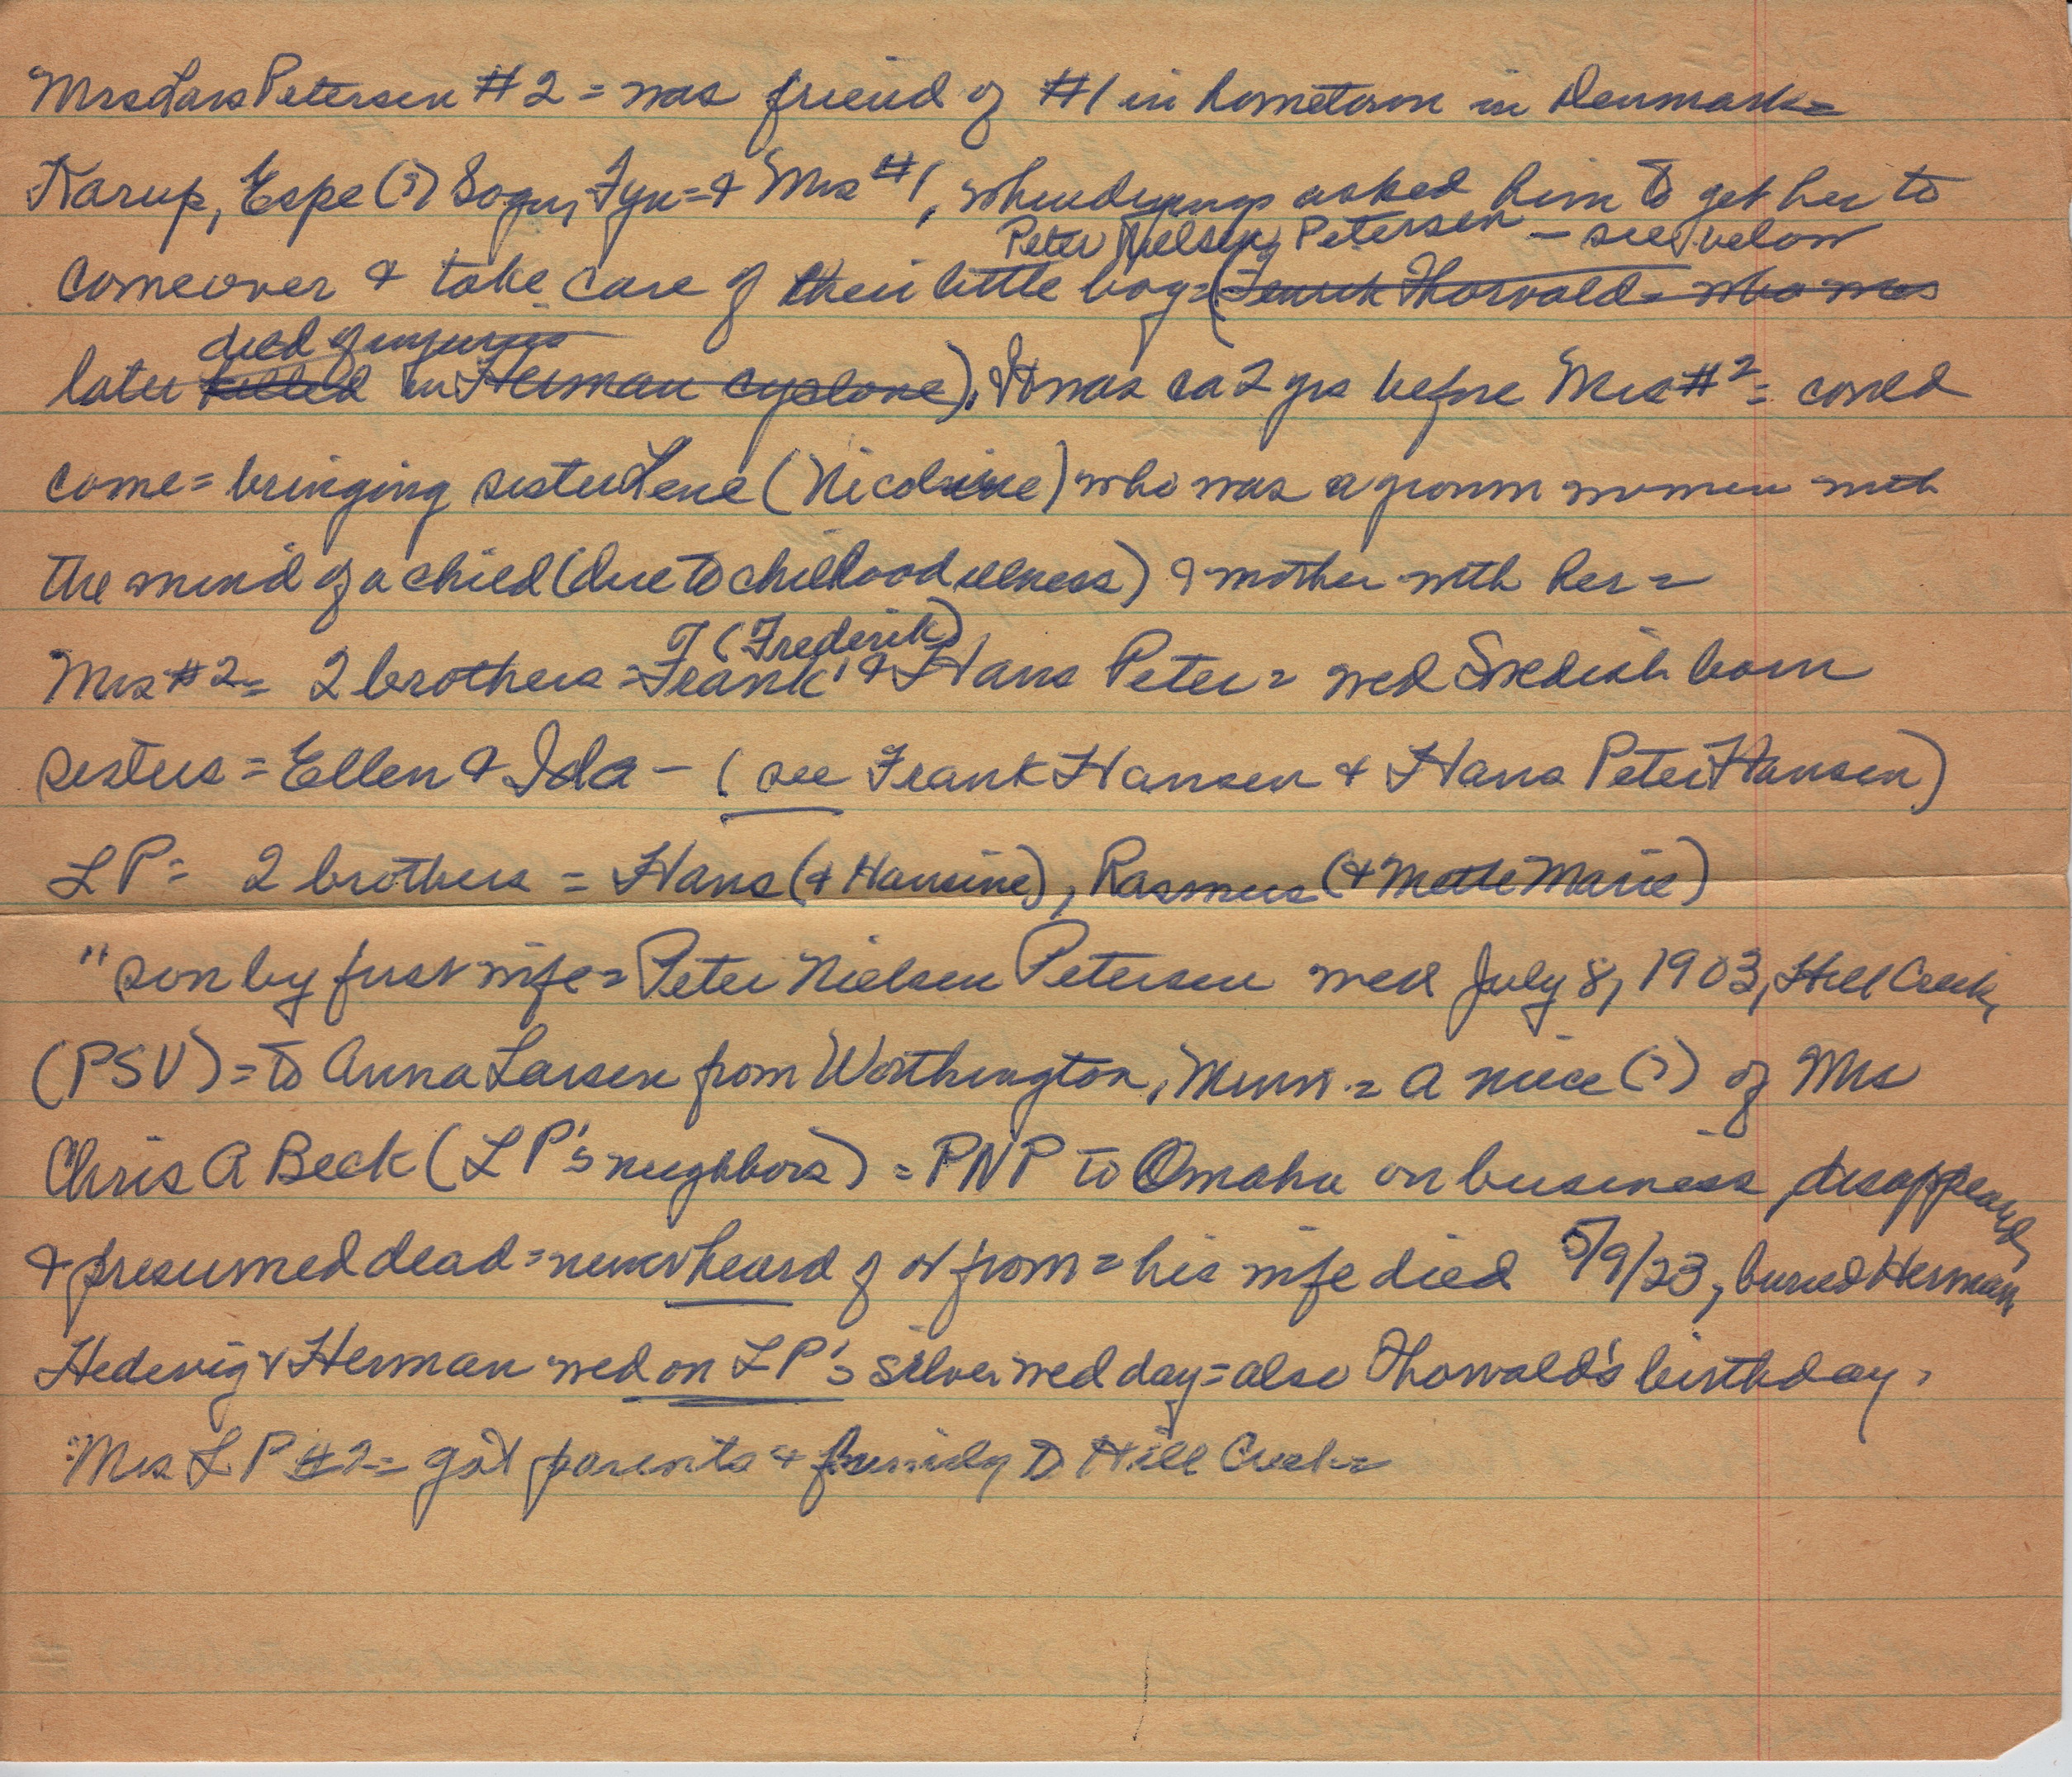 Mrs Lars Petersen #2 = was friend of #1 in hometown in Denmark =
Karup, Espe (?) Sogn, Fyn = & Mrs #1, when dying asked him to get her to
Peter Nielsen Petersen - see below
come over & take care of their little boy = ( Thorvald - who was
died of injuries
later killed in Herman cyclone). It was ca 2 yrs before Mrs #2 = could
come = bringing sister Lene (Nicoline) who was a grown women with
the mind of a child (due to childhood illness) & mother with her =
T (Frederik)
Mrs #2 = 2 brothers = Frank & Hans Peter = wed Swedish born
sisters = Ellen & Ida - (see Frank Hansen & Hans Peter Hansen)
LP = 2 brothers = Hans (& Hansine), Rasmus (& Mette Marie)
" son by first wife = Peter Nielsen Petersen wed July 8, 1903, Hill Creek,
(PSV) = to Anna Larsen from Worthington, Minn. = a niece (?) of Mrs
Chris A Beck (LP's neighbors) = PNP to Omaha on business disappeared,
& presumed dead = never heard of or from = his wife died 5/9/23, buried Herman,
Hedevig & Herman wed on LP's silver wed day = also Thorvald's birthday.
Mrs LP #2 = got parents & family to Hill Creek =